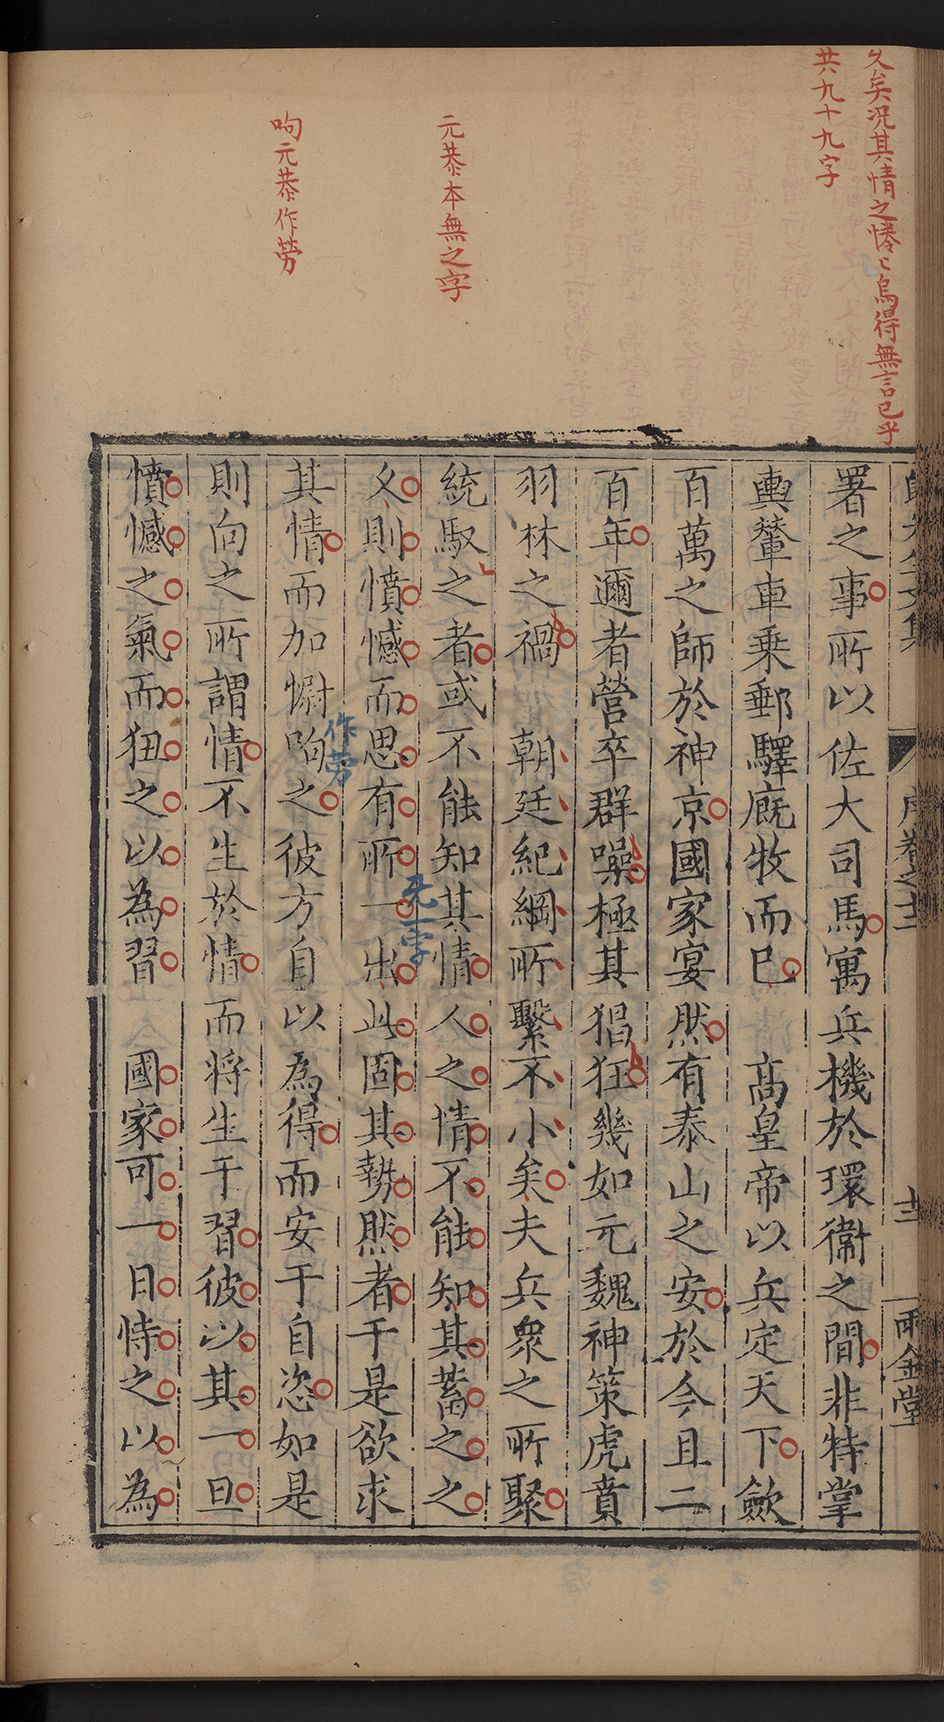 久矣况其情之慘〻烏得無言已乎
共九十九字
元恭本無之字
呴元恭作勞
署之事所以佐大司馬寓兵機於環衛之間非特掌
輿輦車乗郵驛廐牧而已 髙皇帝以兵定天下歛
百萬之師於神京國家宴然有泰山之安於今且二
百年邇者營卒群噪極其猖狂幾如元魏神策虎賁
羽林之禍 朝廷紀綱所繫不小矣夫兵衆之所聚
統馭之者或不能知其情人之情不能知其蓄之之
乆則憤憾而思有所一出此固其勢然者于是欲求
无一字
其情而加慰呴之彼方自以為得而安于自恣如是
作勞
則向之所謂情不生於情而将生于習彼以其一旦
憤憾之氣而狃之以為習 國家可一日恃之以為
序卷之十二
十三
兩金堂